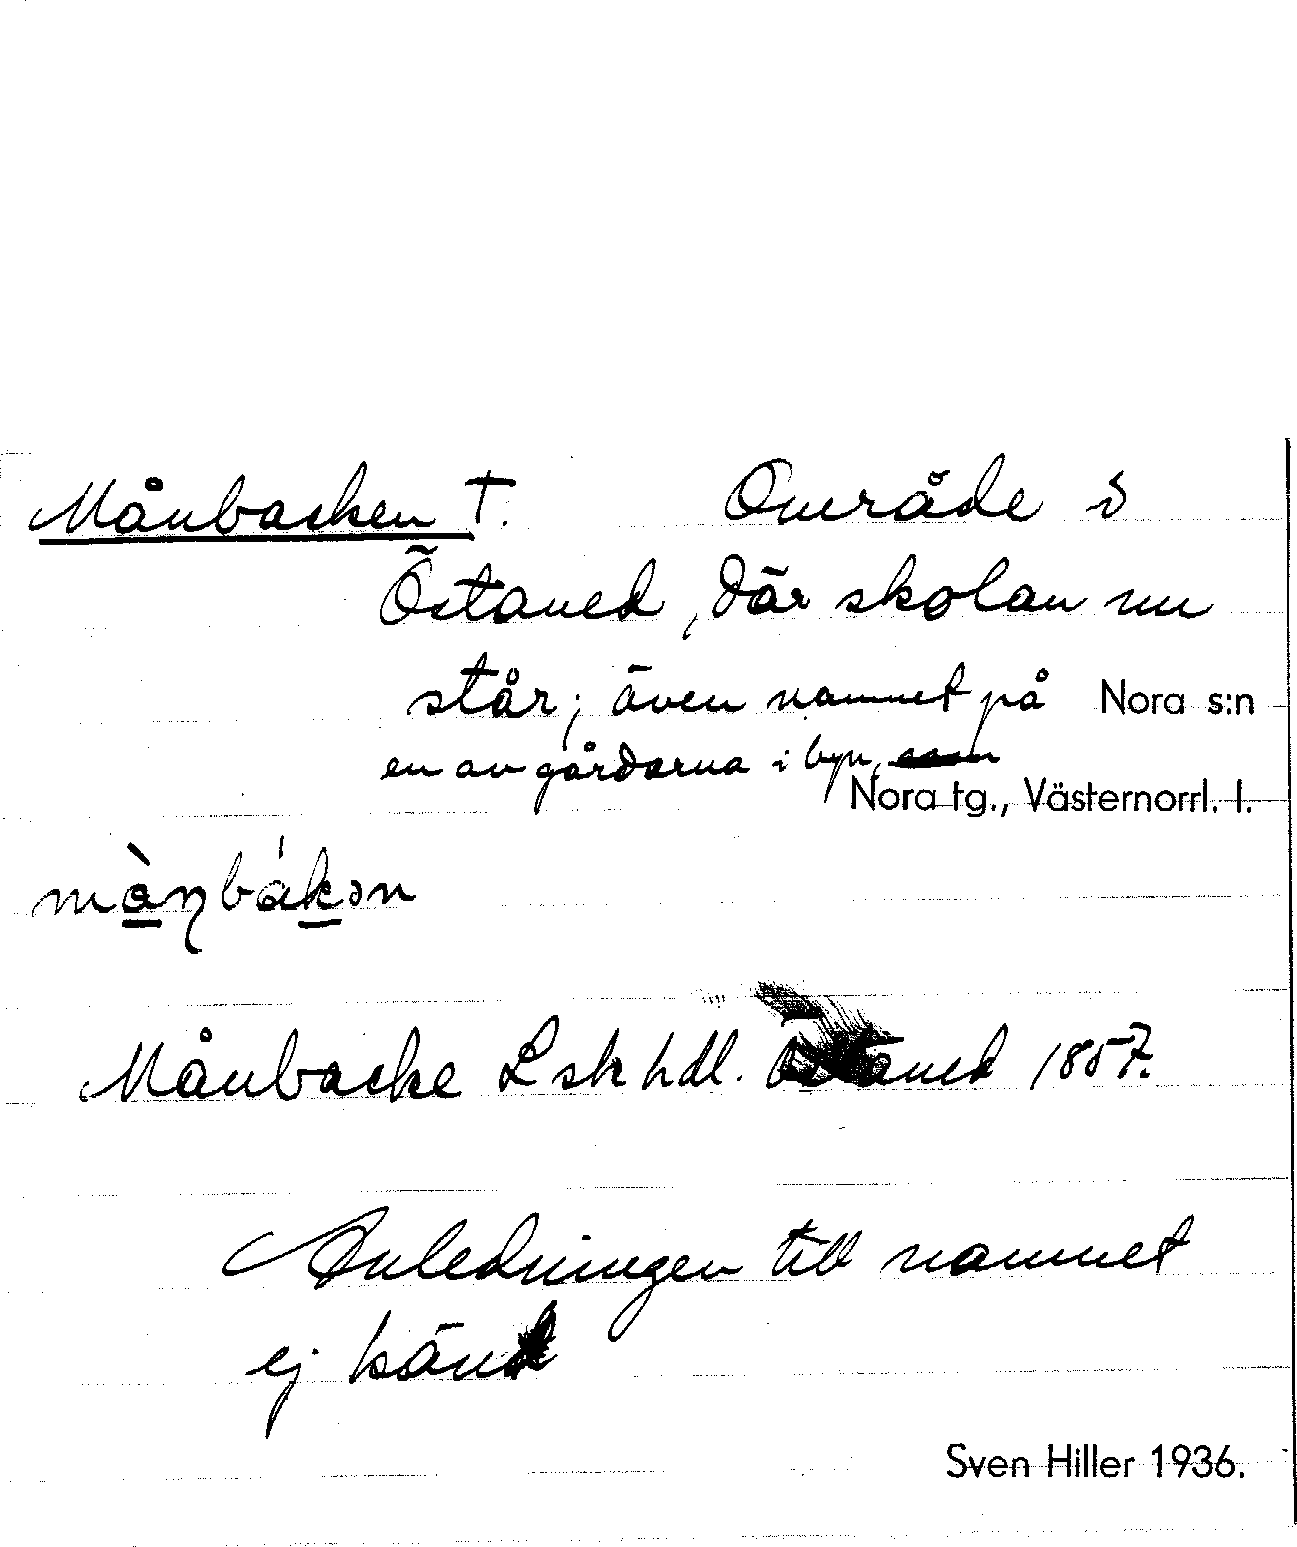 Månbacken T. Område i
Östaned, där skolan nu
står; även namnet på Nora s:n
en av gårdarna i byn,
Nora tg., Västernorrl. l.
Månbacke Lskhdl. Östaned 1857.
Anledningen till namnet
ej känd
Sven Hiller 1936.